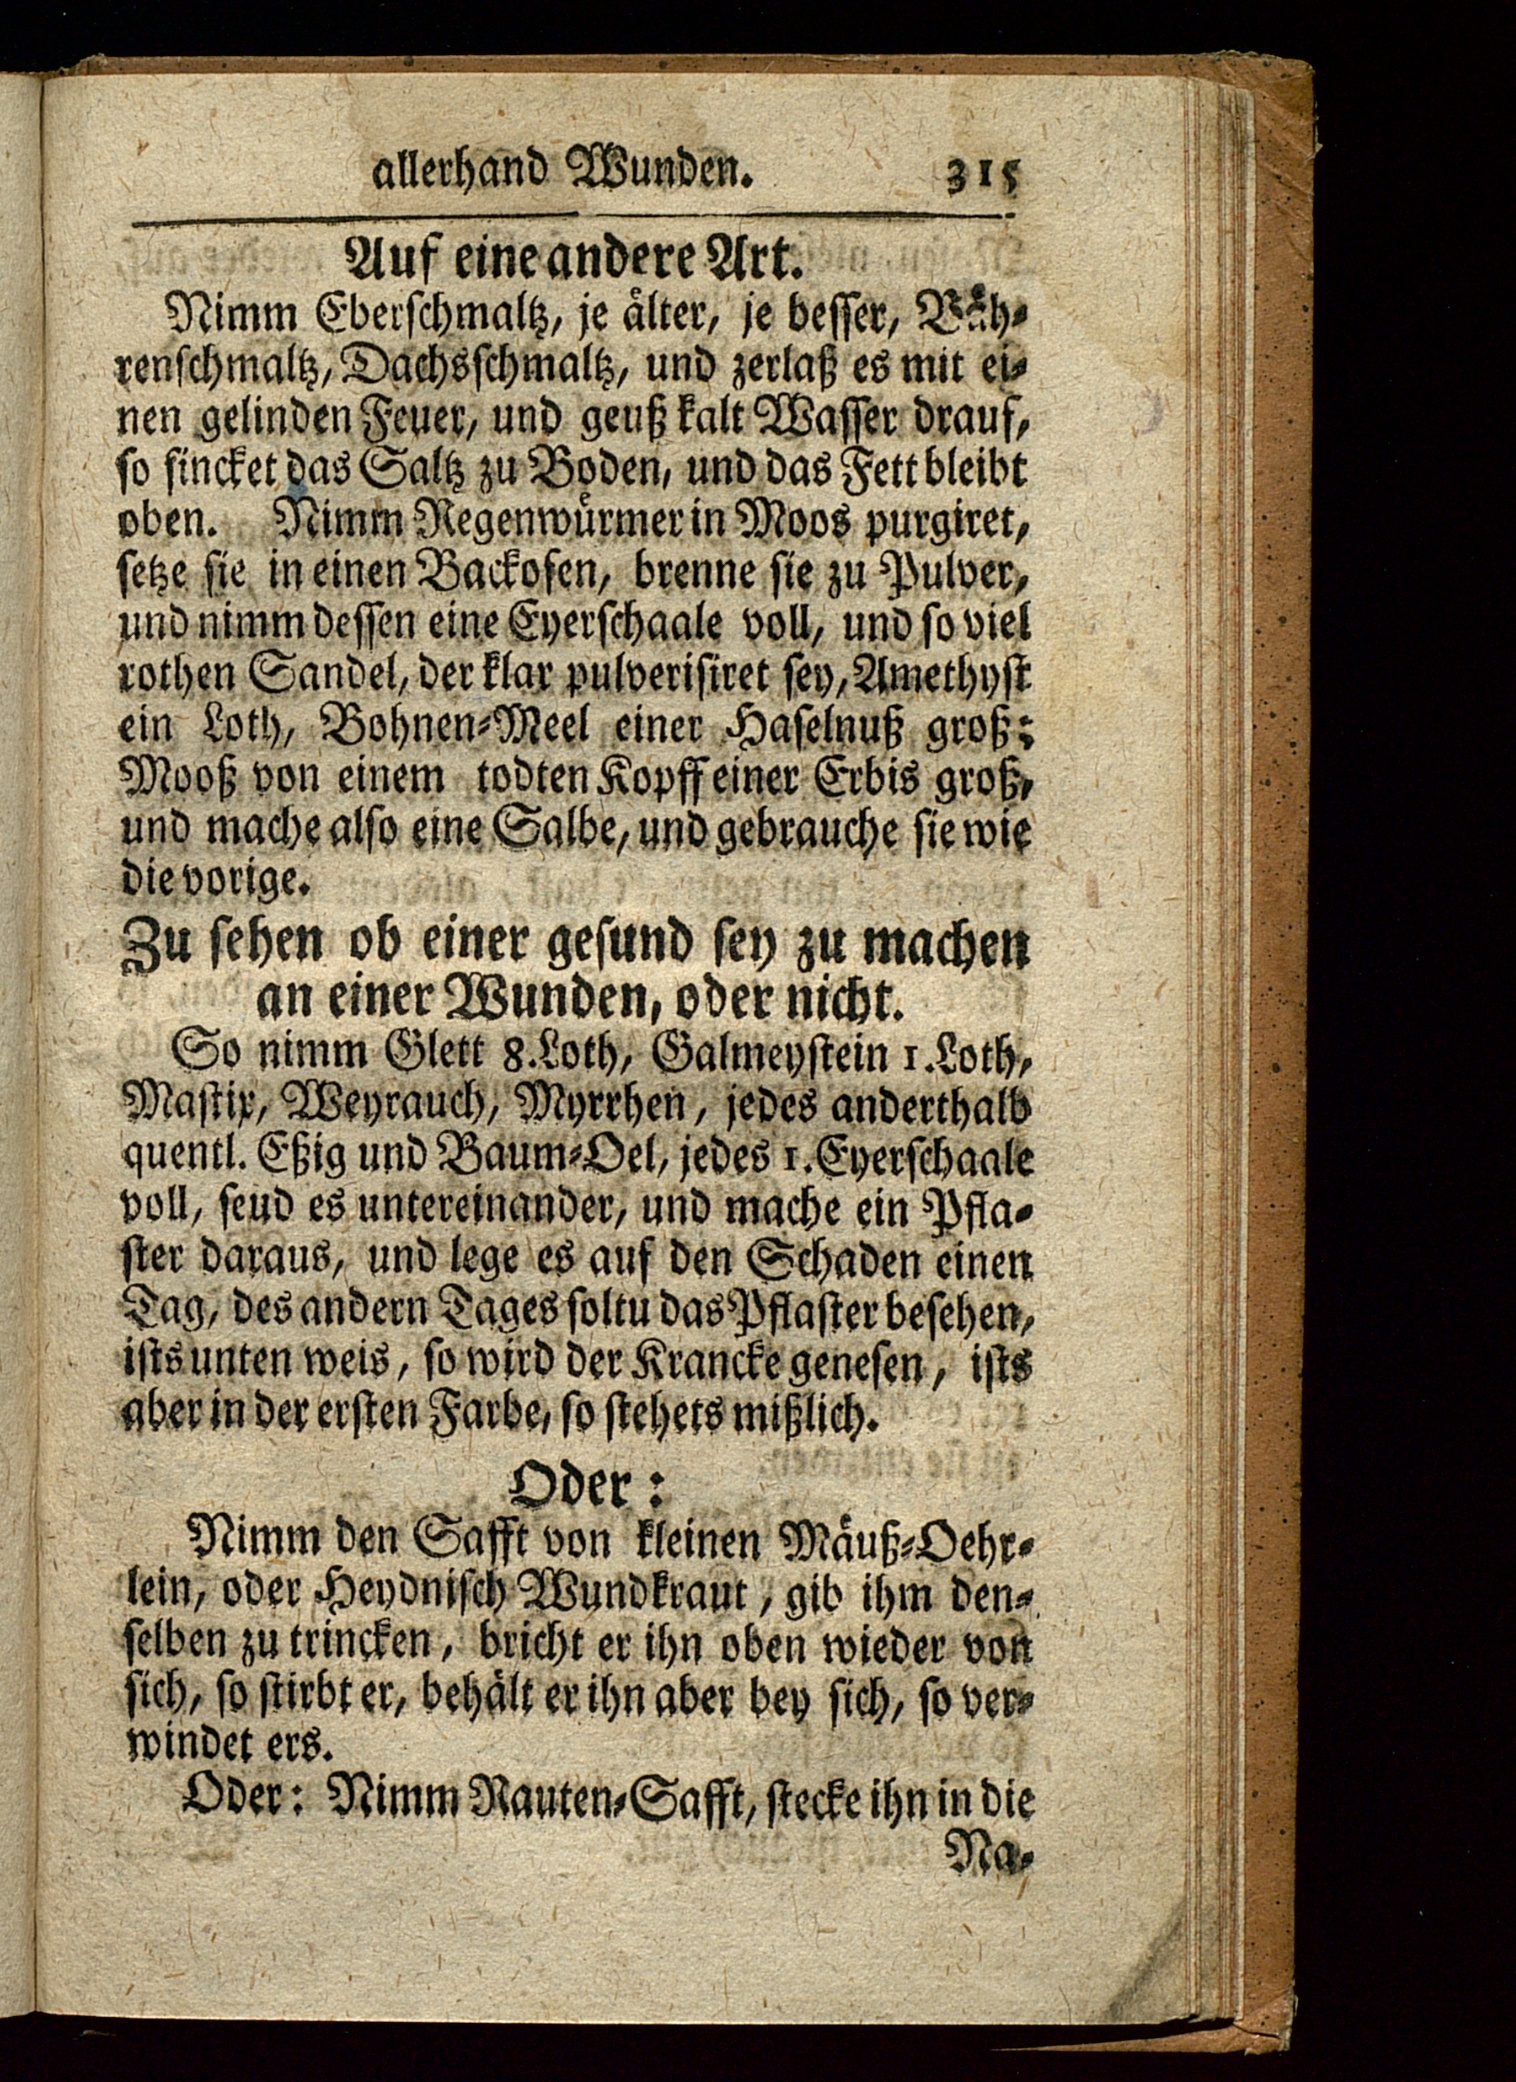 allerhand Wunden. 315
Auf eine andere Art.
Nimm Eberschmaltz, je älter, je besser, Bäh-
renschmaltz, Dachsschmaltz, und zerlaß es mit ei-
nen gelinden Feuer, und geuß kalt Wasser drauf,
so sincket das Saltz zu Boden, und das Fett bleibt
oben. Nimm Regenwürmer in Moos purgiret,
setze sie in einen Backofen, brenne sie zu Pulver,
und nimm dessen eine Eyerschaale voll, und so viel
rothen Sandel, der klar pulverisiret sey, Amethyst
ein Loth, Bohnen-Meel einer Haselnuß groß;
Mooß von einem todten Kopff einer Erbis groß,
und mache also eine Salbe, und gebrauche sie wie
die vorige.
Zu sehen ob einer gesund sey zu machen
an einer Wunden, oder nicht.
So nimm Glett 8. Loth, Galmeystein 1. Loth,
Mastix, Weyrauch, Myrrhen, jedes anderthalb
quentl. Eßig und Baum-Oel, jedes 1. Eyerschaale
voll, seud es untereinander, und mache ein Pfla-
ster daraus, und lege es auf den Schaden einen
Tag, des andern Tages soltu das Pflaster besehen,
ists unten weis, so wird der Krancke genesen, ists
aber in der ersten Farbe, so stehets mißlich.
Oder:
Nimm den Safft von kleinen Mäuß-Oehr-
lein, oder Heydnisch Wundkraut, gib ihm den-
selben zu trincken, bricht er ihn oben wieder von
sich, so stirbt er, behält er ihn aber bey sich, so ver-
windet ers.
Oder: Nimm Rauten-Safft, stecke ihn in die
Na-